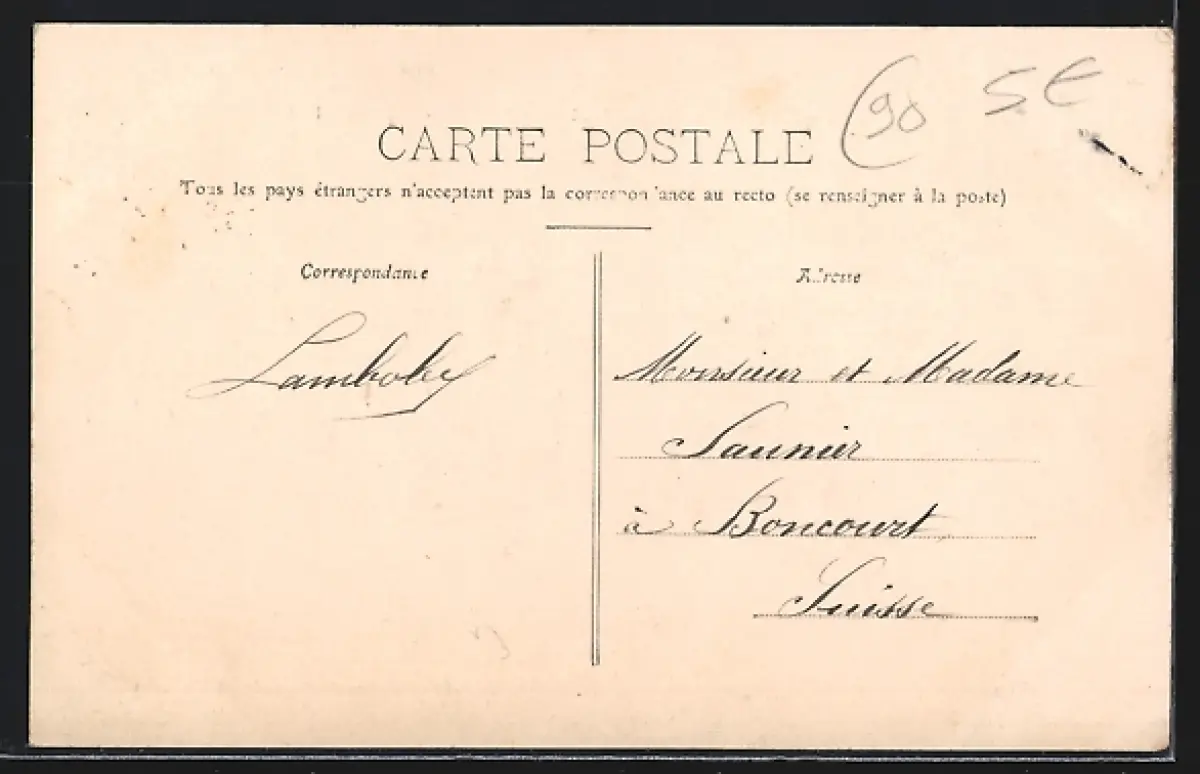 (90 5€
CARTE POSTALE
Tous les pays étrangers n'acceptent pas la correspondance au recto (se renseigner à la poste)
Correspondance
Lamboley
Adresse
Monsieur et Madame
Saunier
à Boncourt
Suisse